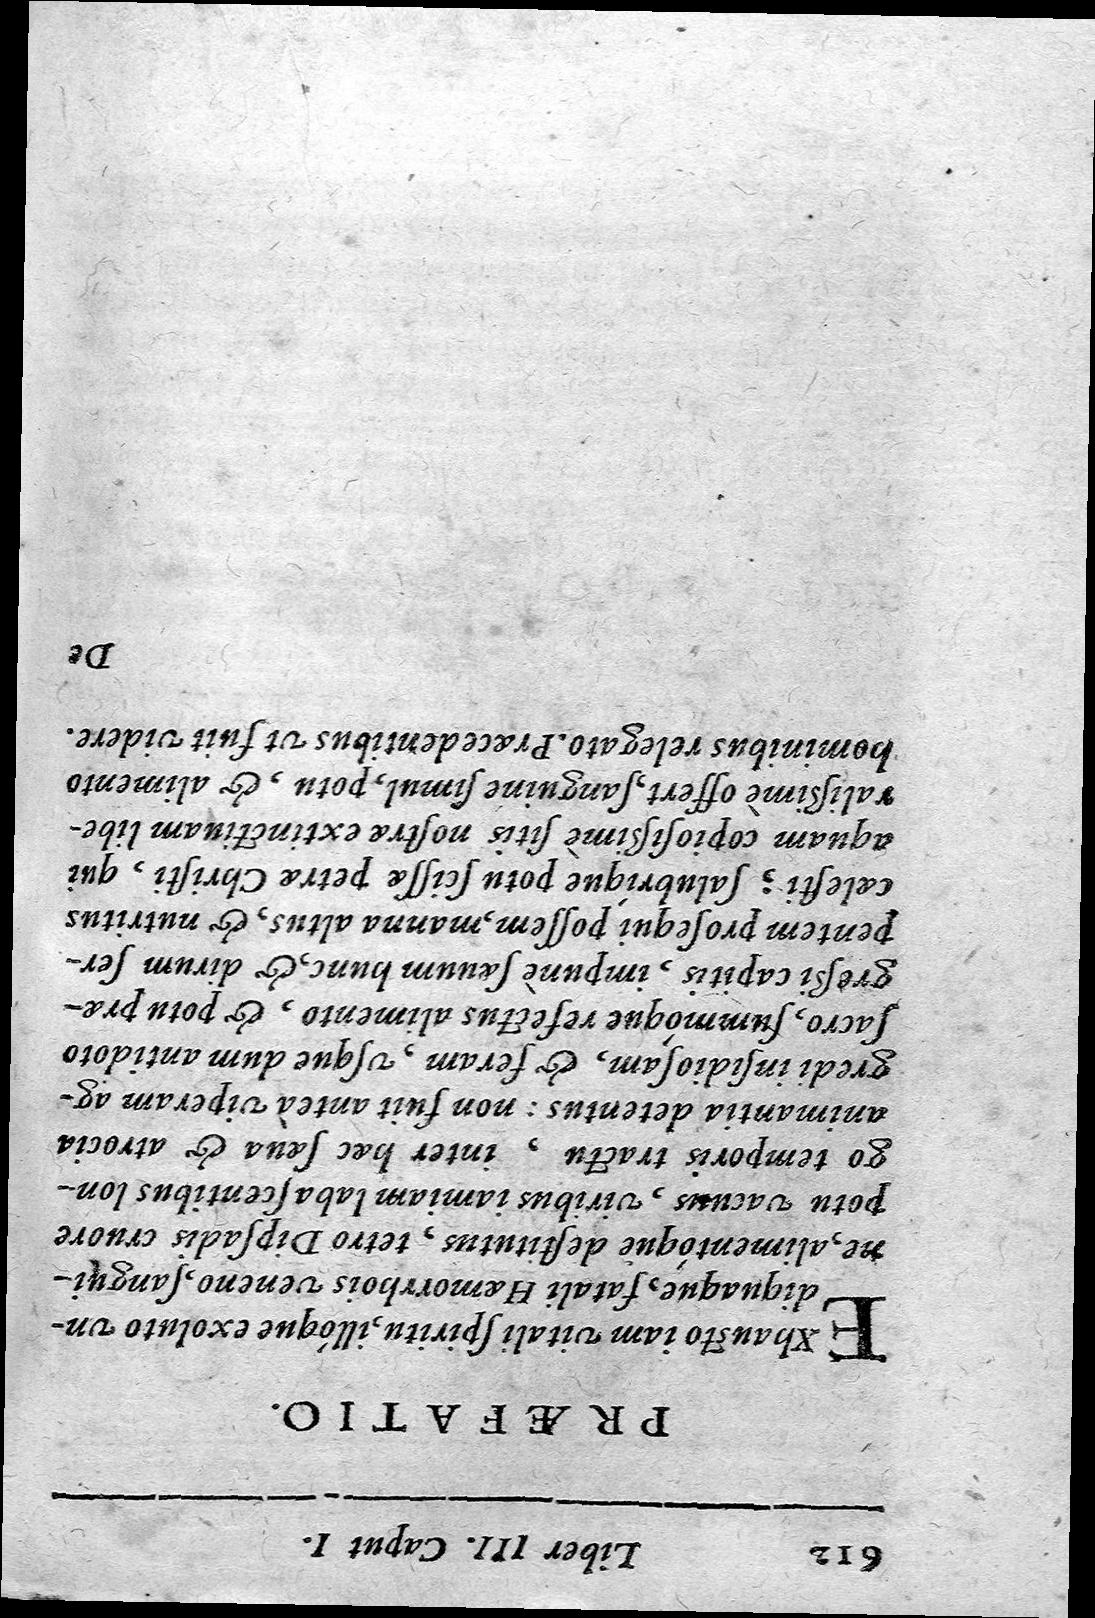 612 Liber III. Caput I.
PRÆFATIO.
EXhausto iam vitali ſpiritu, illóque exoluto vn-
diquaque, fatali Hæmorrhois veneno, ſangui-
ne, alimentóque deſtitutus, tetro Dipſadis cruore
potu vacuus, viribus iamiam labaſcentibus lon-
go temporis tractu, inter hæc ſæua & atrocia
animantia detentus: non fuit anteà viperam ag-
gredi inſidioſam, & feram, vſque dum antidoto
ſacro, ſummóque refectus alimento, & potu præ-
greſſi capitis, impunè ſæuum hunc, & dirum ſer-
pentem proſequi poſſem, manna altus, & nutritus
cæleſti; ſalubríque potu ſciſſæ petræ Chriſti, qui
aquam copioſiſſimè ſitis noſtræ extinctiuam libe-
raliſſimè offert, ſanguine ſimul, potu, & alimento
hominibus relegato. Præcedentibus vt fuit videre.
De